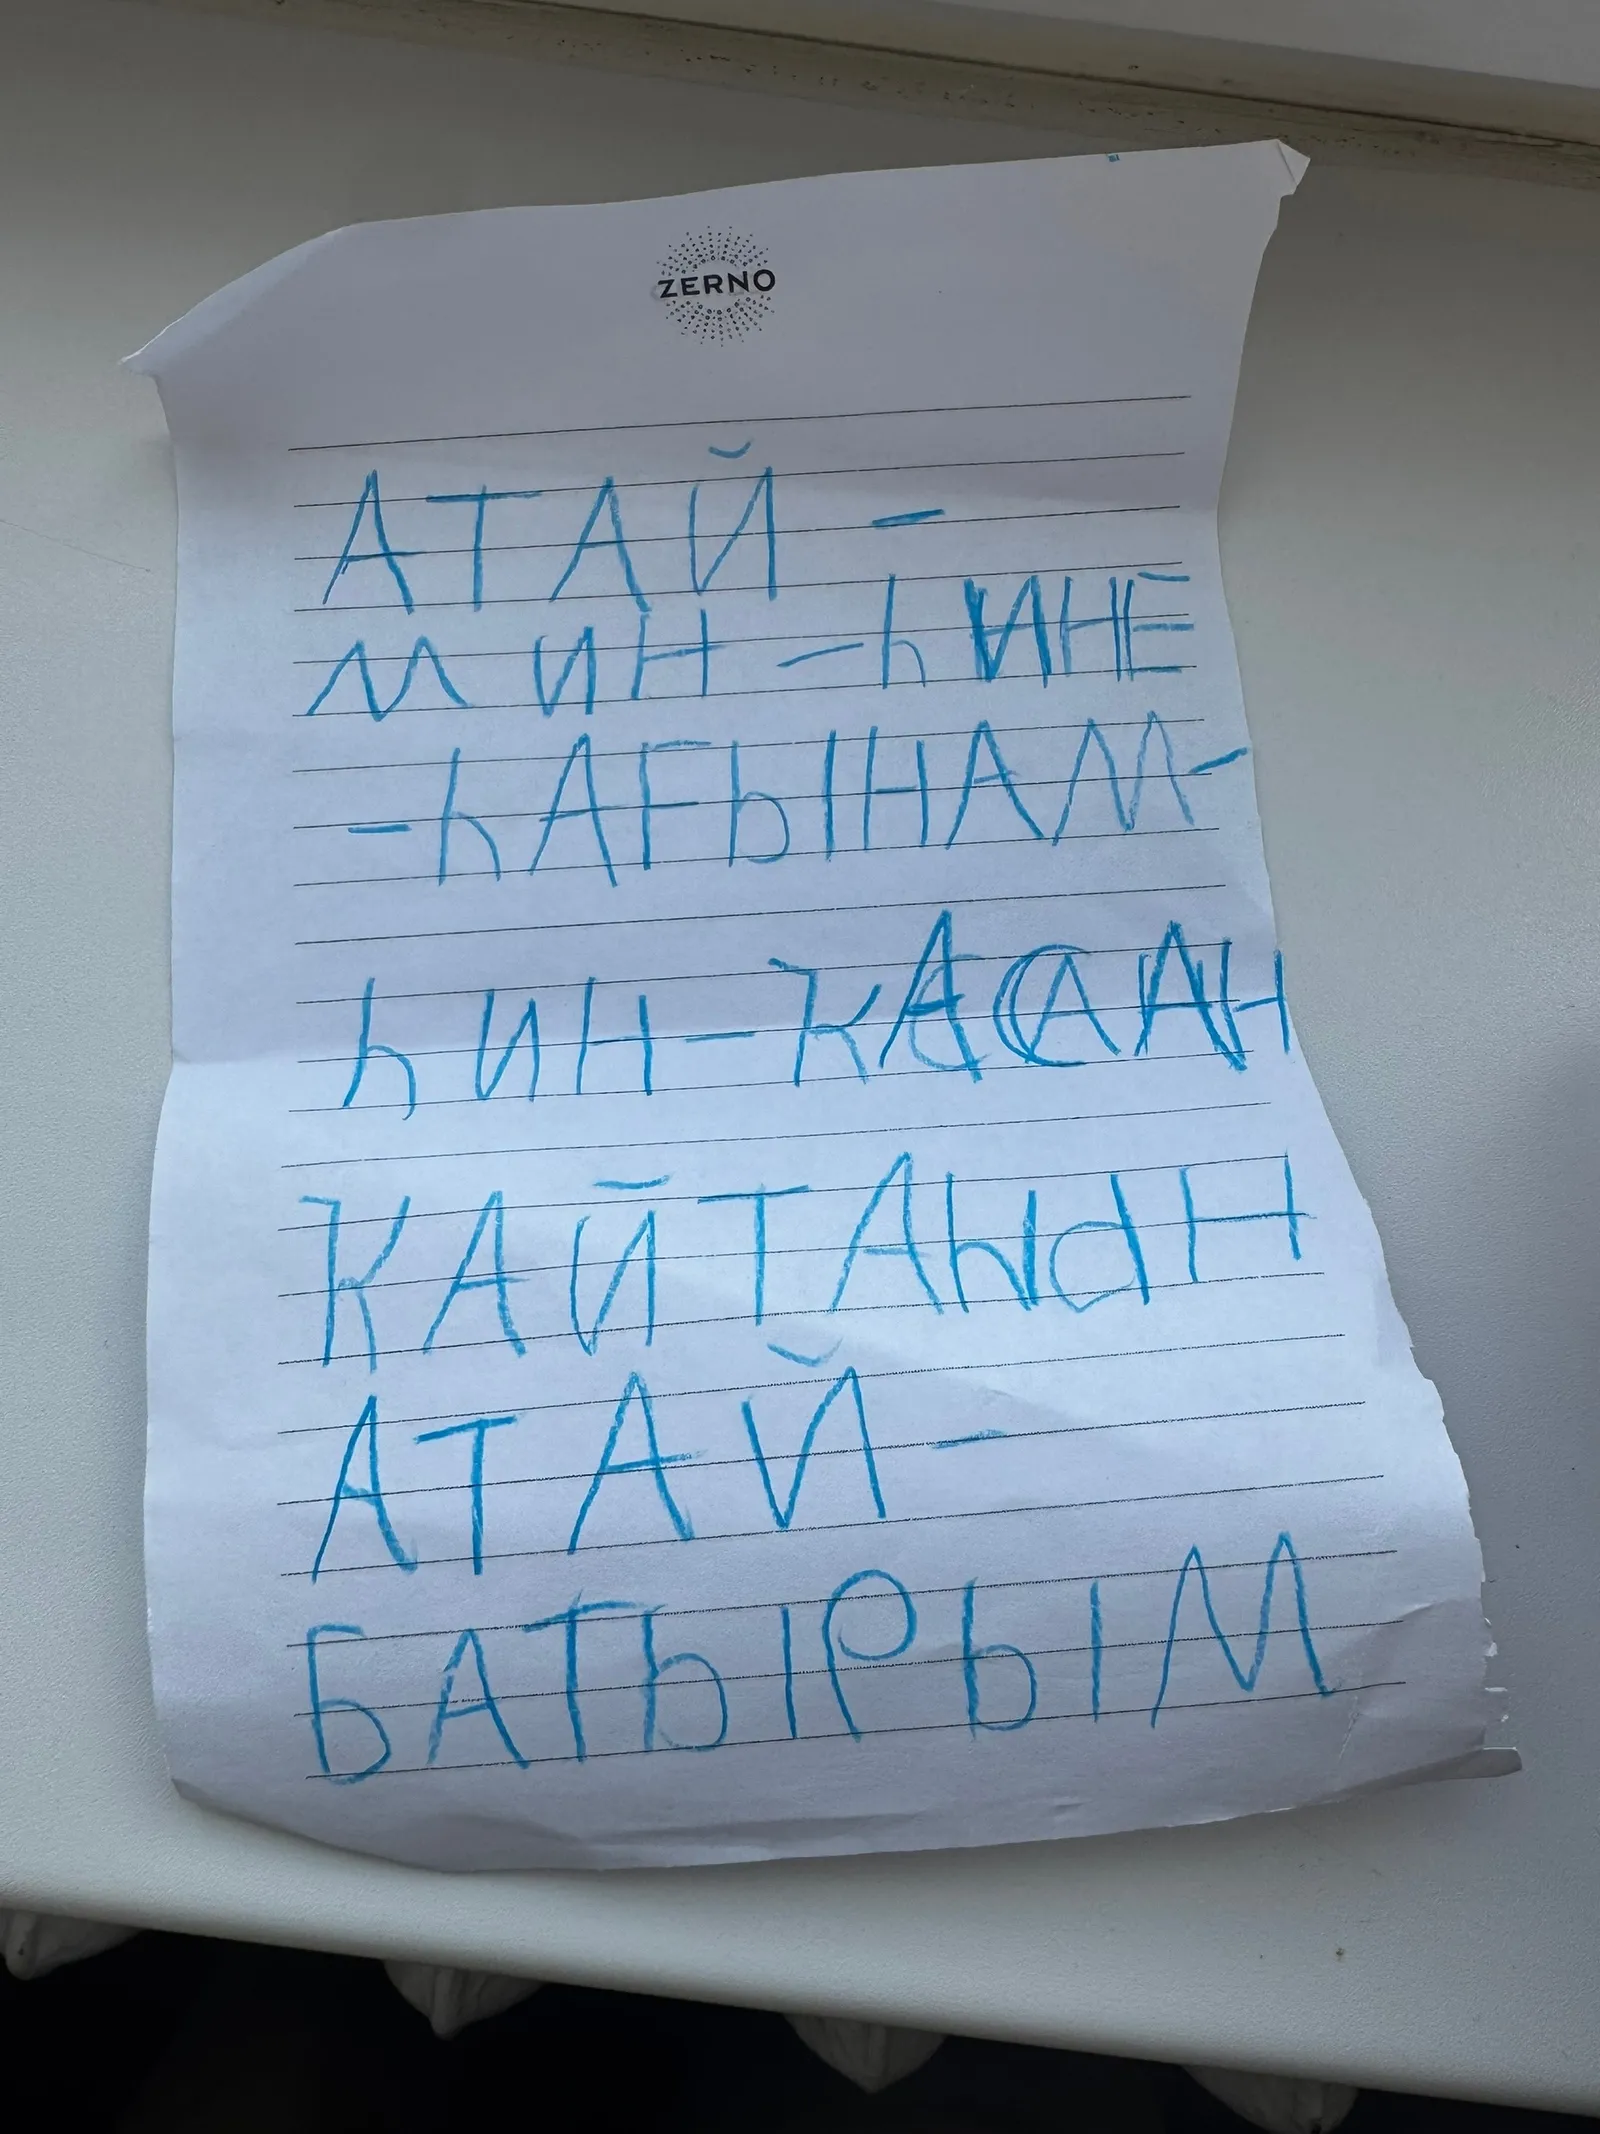 ZERNO
АТАЙ -
МИН - ҺИНЕ
- ҺАҒЫНАМ -
ҺИН - ҠАСАН
ҠАЙТАҺЫН
АТАЙ -
БАТЫРЫМ